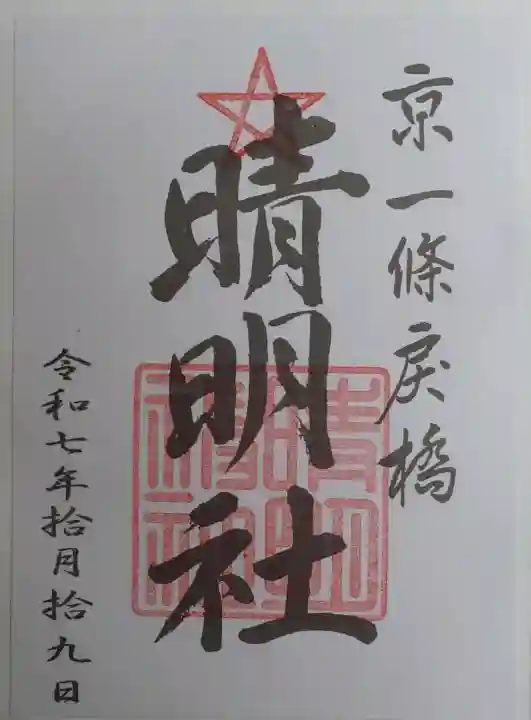 京一條戻橋
晴明社
晴明神社
令和七年拾月拾九日